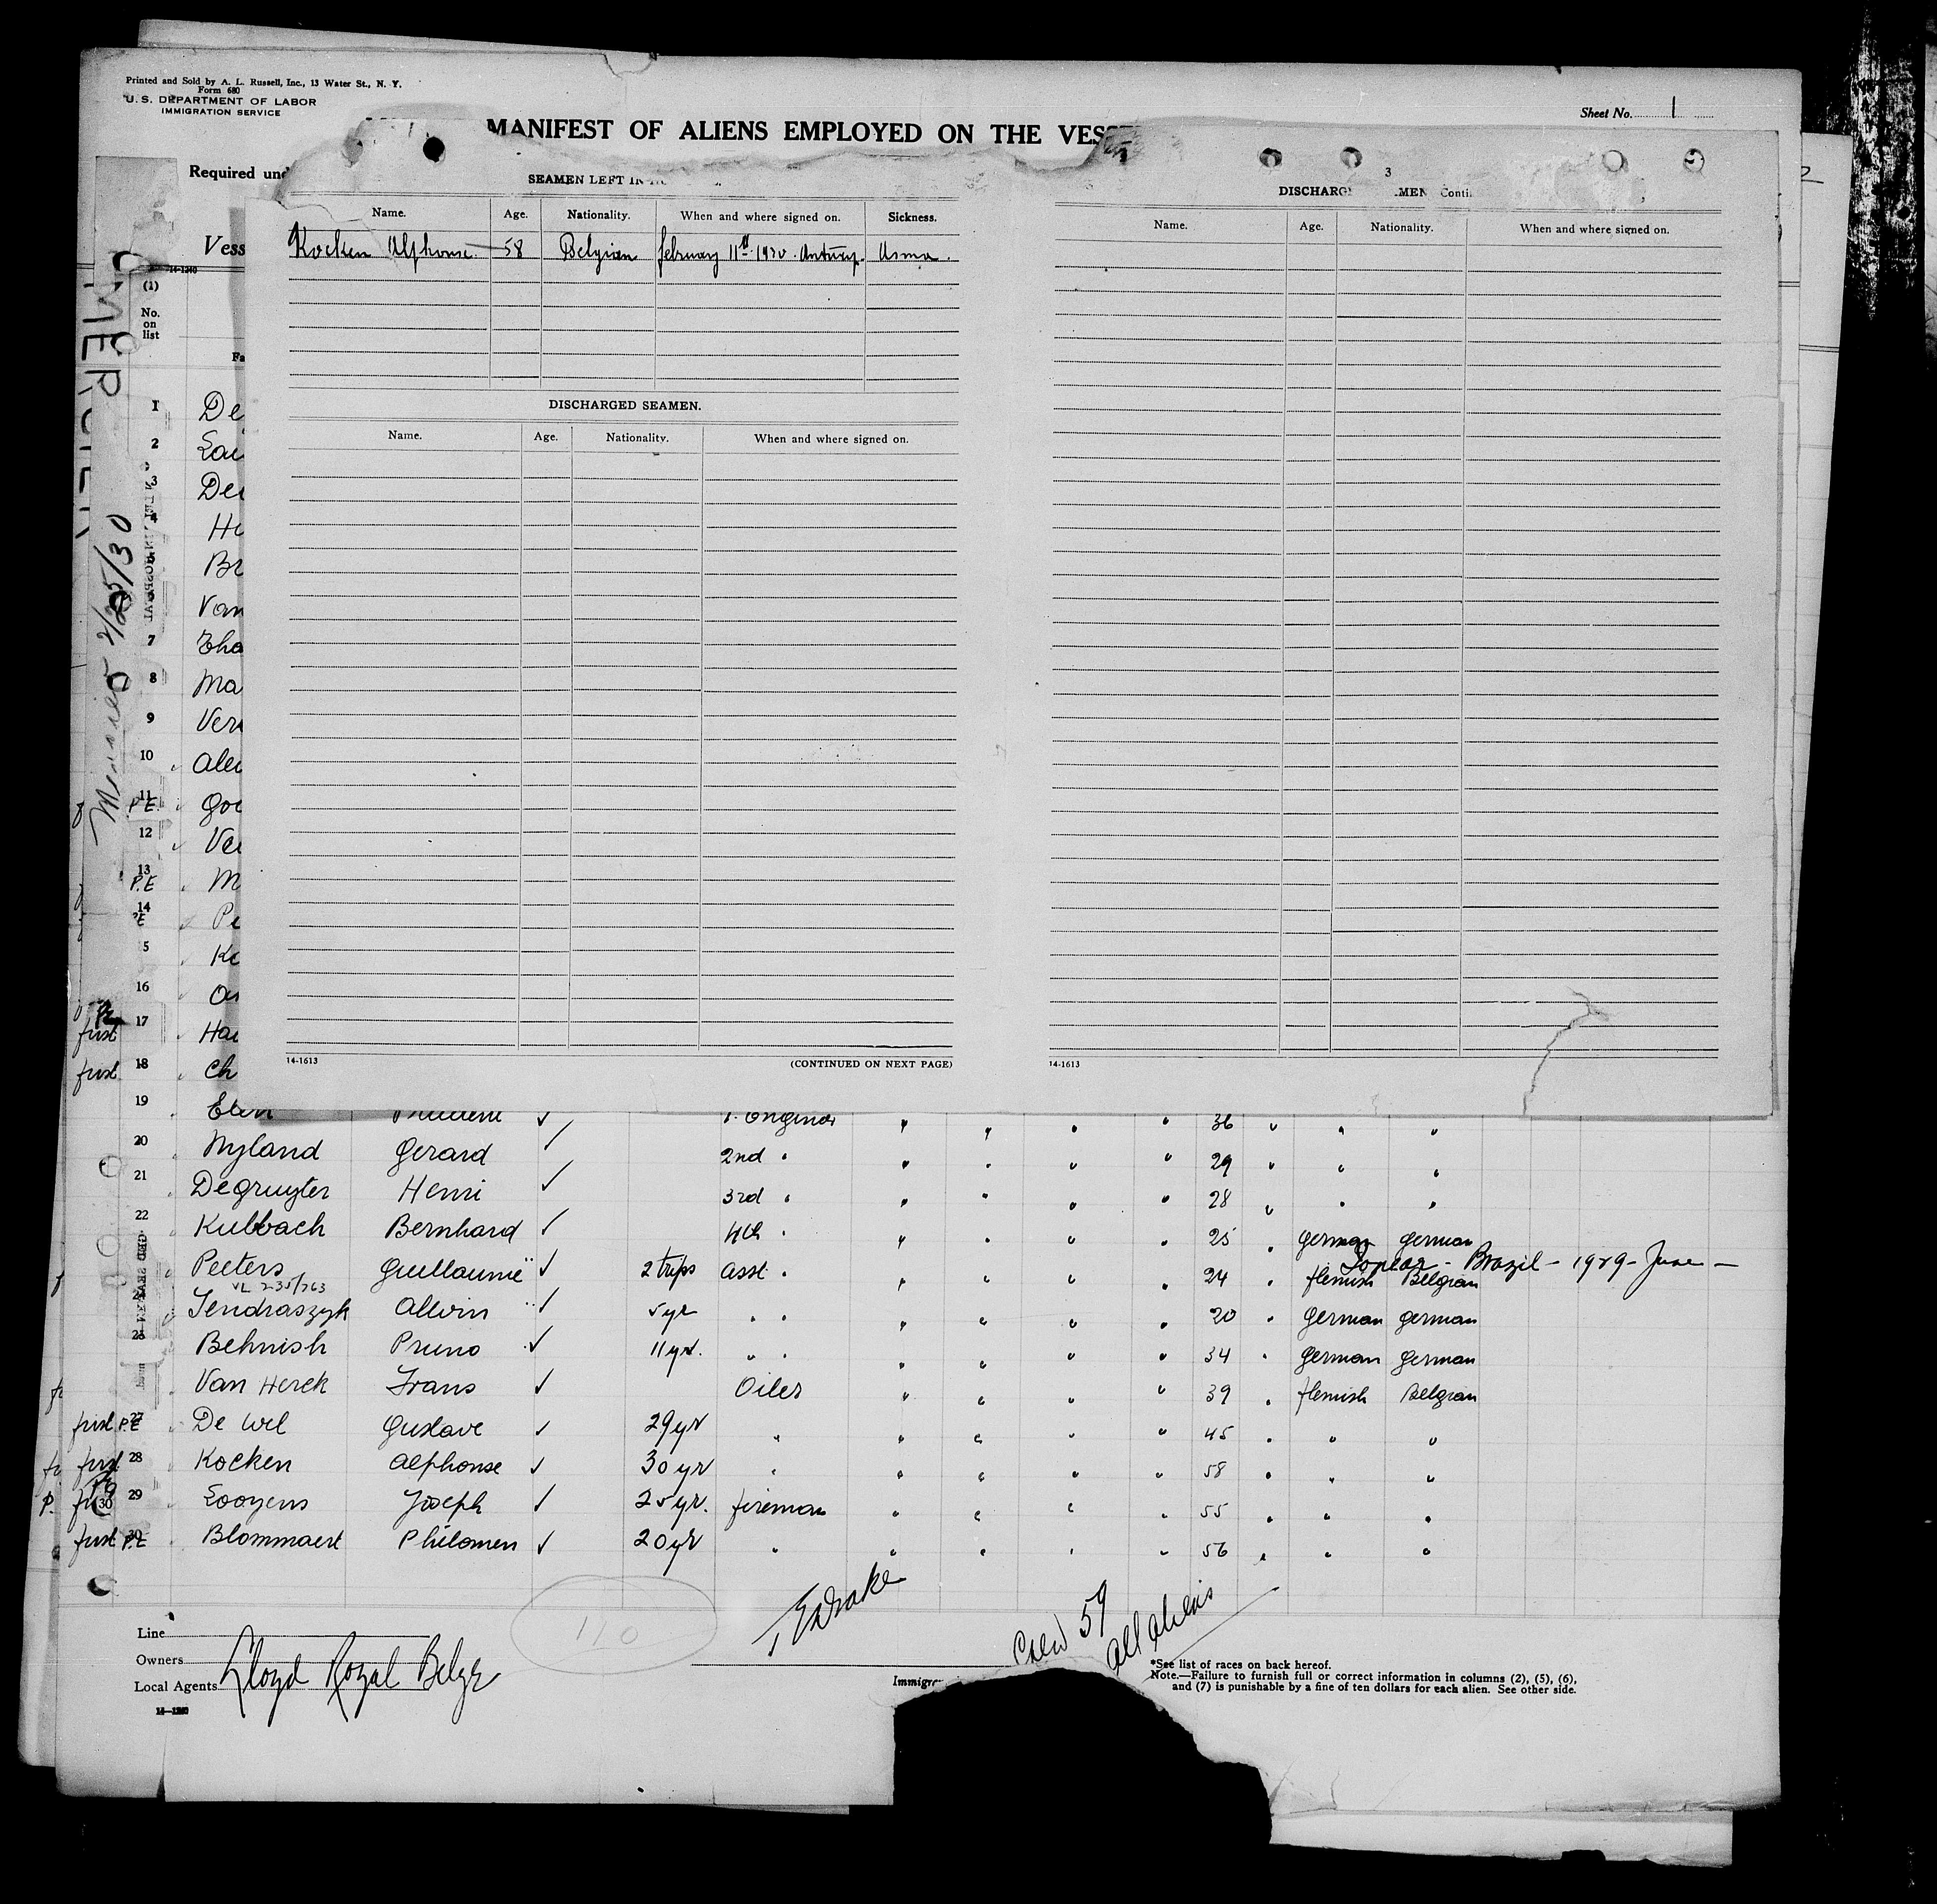 Printed and Sold by A. L. Russell, Inc., 13 Water St., N. Y.
Form 680
U. S. DEPARTMENT OF LABOR
IMMIGRATION SERVICE
Sheet No. 1
MANIFEST OF ALIENS EMPLOYED ON THE VESS
Required und
Vess
14-1240
(1)
No.
on
list
Fa
SEAMEN LEFT IN
Name. Age. Nationality. When and where signed on. Sickness.
Kocken Alphonse 58 Belgian february 11th 1930. Antwerp. Asma.
DISCHARGED SEAMEN.
Name. Age. Nationality. When and where signed on.
14-1613 (CONTINUED ON NEXT PAGE)
3
DISCHARG MEN Conti
Name. Age. Nationality. When and where signed on.
14-1613
2/25/30
1 De
2 Lai
3 De
4 He
5 Br
Van
7 Tho
8 Ma
9 Ver
10
11 P.E. Goe
12
13 P.E M
14 P.E Pe
5 Ke
16
first 17 Ha
first 18 Ch
19 1. Enginee 36
20 Nyland Gerard ✓ 2nd " " " " " 29 " " "
21 Degruyter Henri ✓ 3rd " " " " " 28 " " "
22 Kubbach Bernhard ✓ 4th " " " " " 25 " german german
Brazil - 1929 - June -
Peeters Guillaume ✓ 2 trips asst " " " " " 24 " flemish Belgian
VL 235/763
24 Jendraszyk Alwin ✓ 5 yr " " " " " " 20 " german german
25 Behnish Pruno ✓ 11 yr. " " " " " " 34 " german german
Van Herck Frans ✓ Oiler " " " " 39 " flemish Belgian
first P.E 27 De Wel Gustave ✓ 29 yr " " " " " 45 " " "
first 28 Kocken Alphonse ✓ 30 yr " " " " " 58 " " "
29 Looyens Joseph ✓ 25 yr. fireman " " " " 55 " " "
first P.E 30 Blommaert Philomen ✓ 20 yr " " " " " 56 " " "
110
Crew 59
all aliens
Line
Owners
Local Agents Lloyd Royal Belge
Immigr
*See list of races on back hereof.
Note.—Failure to furnish full or correct information in columns (2), (5), (6),
and (7) is punishable by a fine of ten dollars for each alien. See other side.
14—1240